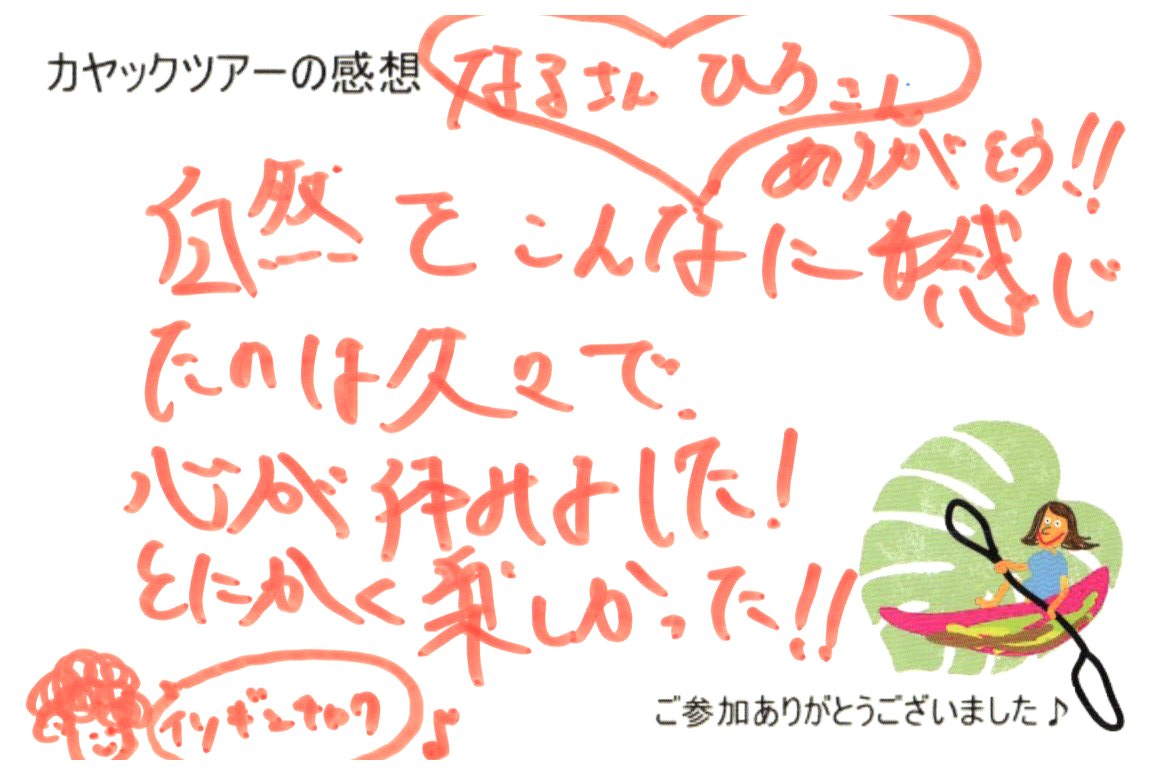 カヤックツアーの感想
なるさん
ありがとう!!
自然をこんなに感じ
たのは久々で、
心が休めました!
とにかく楽しかった!!
イソギンチャク♪
ご参加ありがとうございました♪